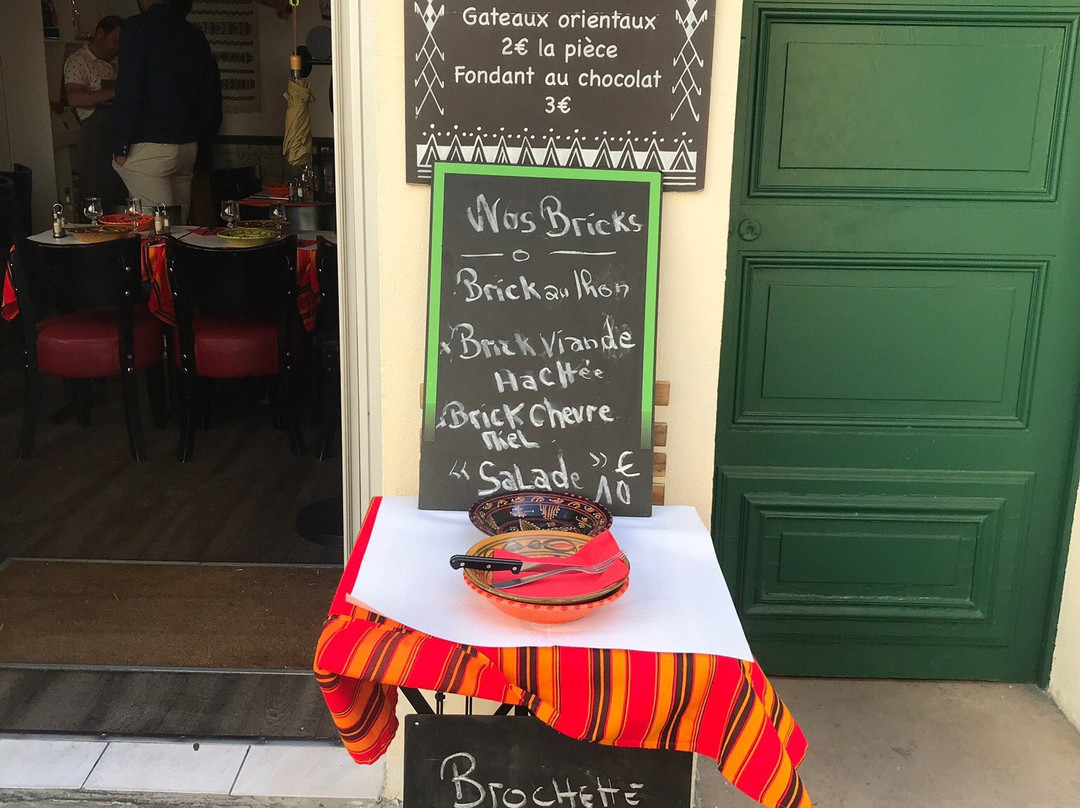 Gateaux orientaux
2€ la pièce
Fondant au chocolat
3€
Nos Bricks
Brick au thon
x Brick Viande
Hachée
x Brick Chevre
miel
"Salade" €
10
Brochette